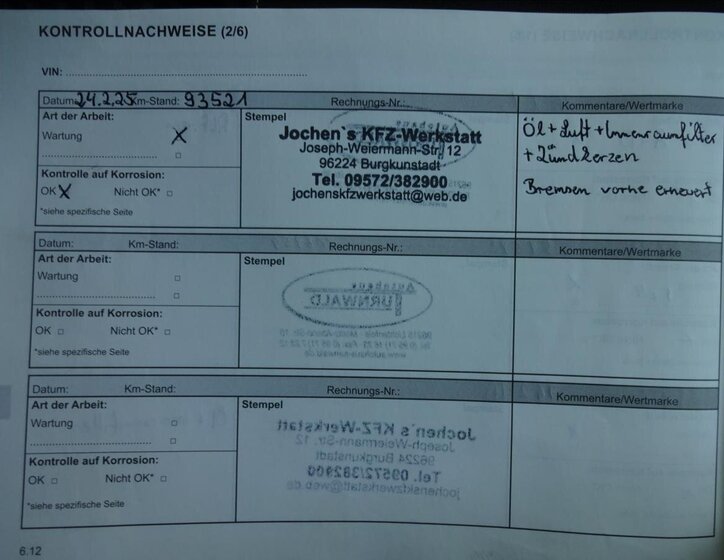 KONTROLLNACHWEISE (2/6)
VIN: ................................................................
Datum: 24.2.25 Km-Stand: 93521 Rechnungs-Nr.: Kommentare/Wertmarke
Art der Arbeit:
Wartung X
Kontrolle auf Korrosion:
OK X Nicht OK* □
*siehe spezifische Seite
Stempel
Jochen`s KFZ-Werkstatt
Joseph-Weiermann-Str. 12
96224 Burgkunstadt
Tel. 09572/382900
jochenskfzwerkstatt@web.de
Öl + Luft + Innenraumfilter
+ Zündkerzen
Bremsen vorne erneuert
Datum: Km-Stand: Rechnungs-Nr.: Kommentare/Wertmarke
Art der Arbeit:
Wartung □
□
Kontrolle auf Korrosion:
OK □ Nicht OK* □
*siehe spezifische Seite
Stempel
Autohaus
TURNWALD
Datum: Km-Stand: Rechnungs-Nr.: Kommentare/Wertmarke
Art der Arbeit:
Wartung □
□
Kontrolle auf Korrosion:
OK □ Nicht OK* □
*siehe spezifische Seite
Stempel
Jochen`s KFZ-Werkstatt
Joseph-Weiermann-Str. 12
96224 Burgkunstadt
Tel. 09572/382900
jochenskfzwerkstatt@web.de
6.12